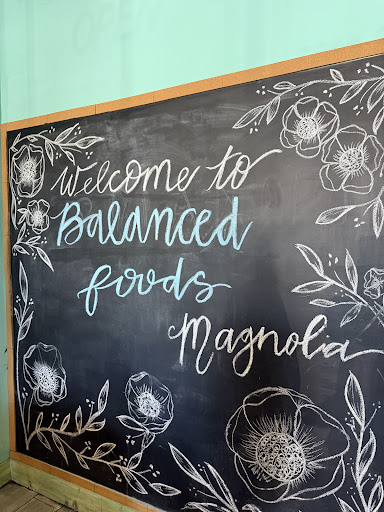 Welcome to
Balanced
foods
Magnolia